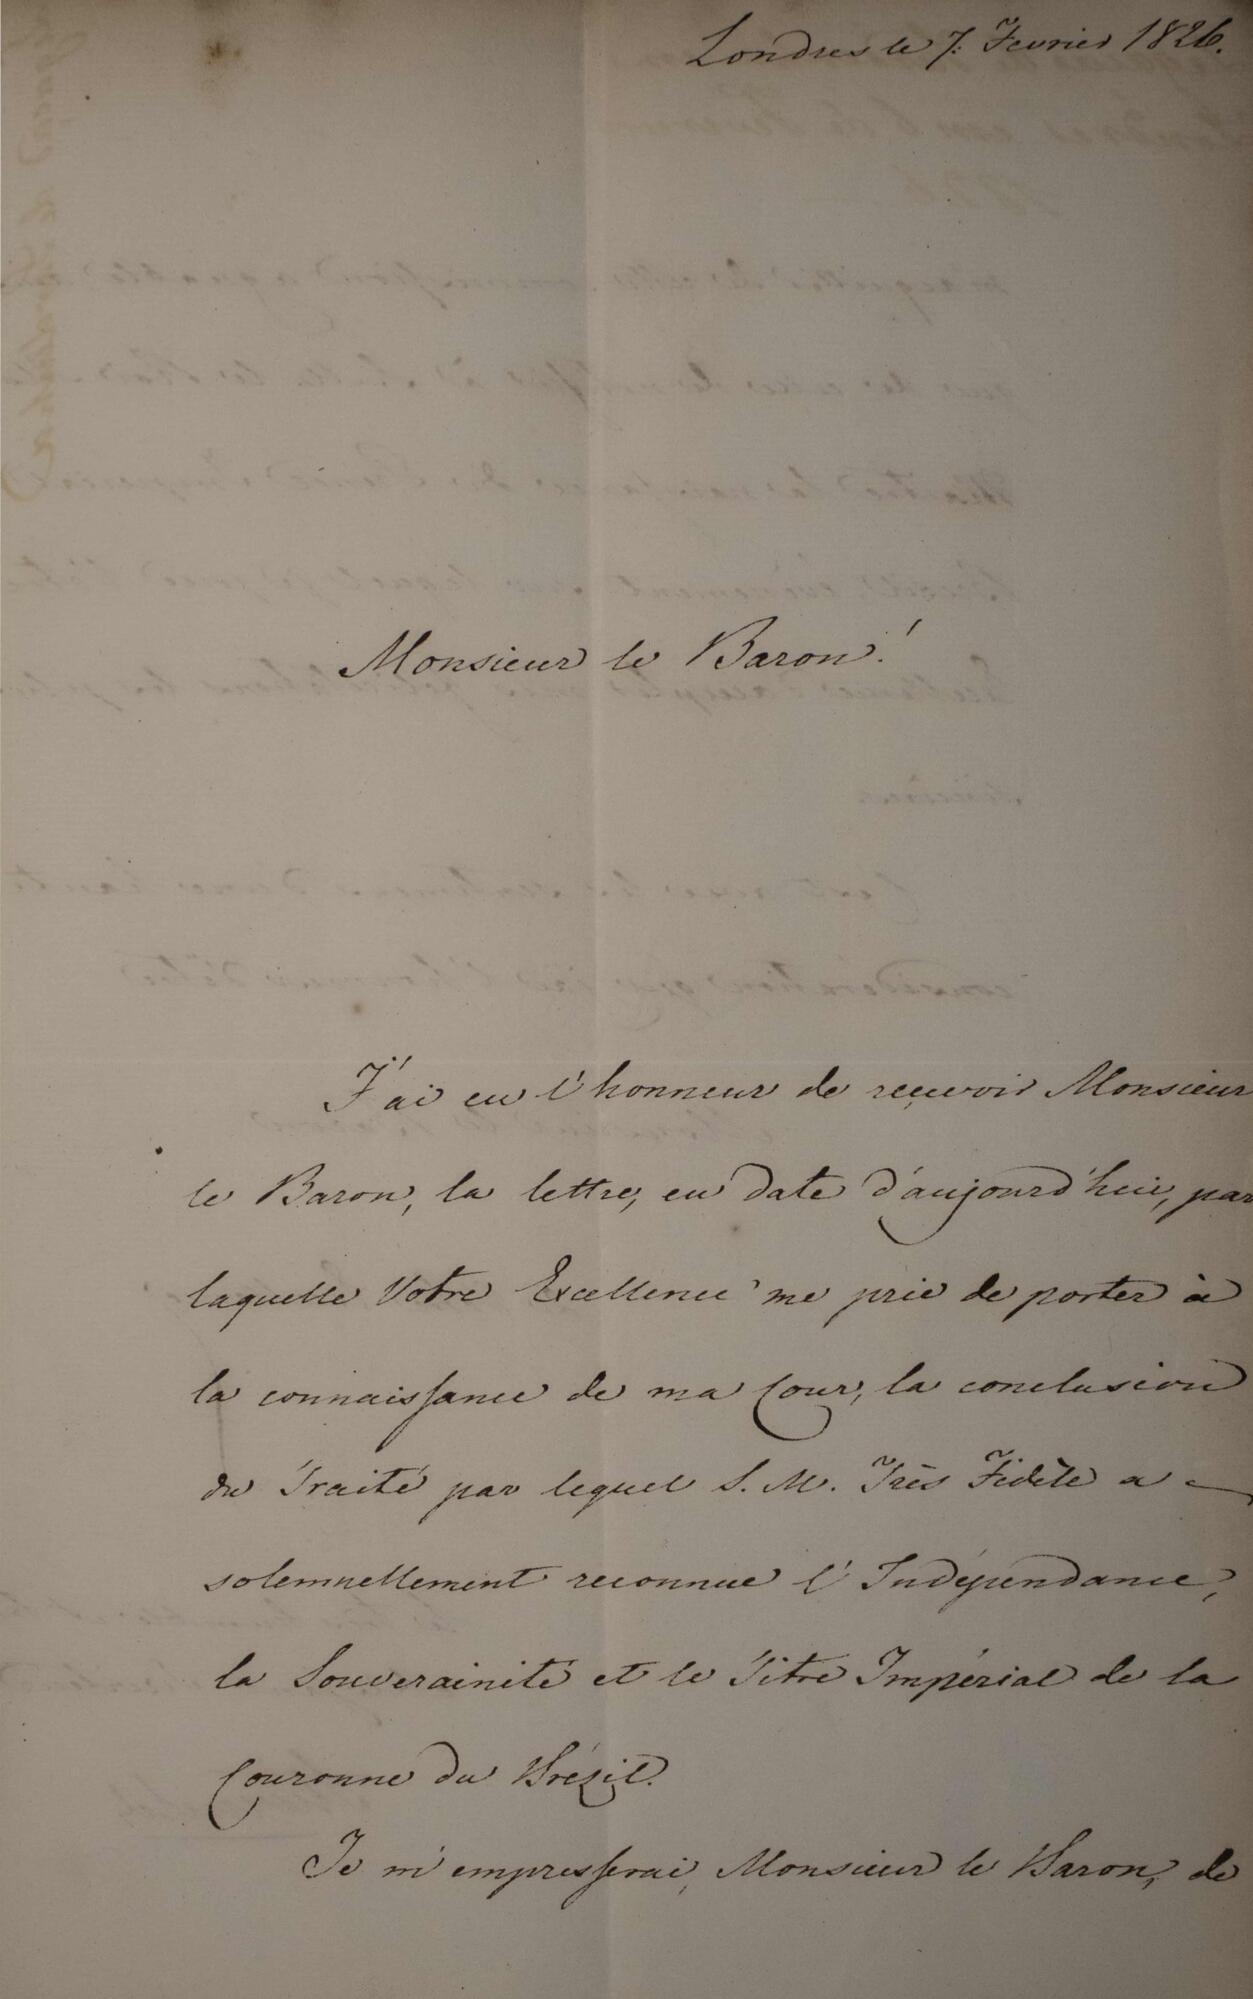 Londres le 7. Fevrier 1826.
Monsieur le Baron!
J'ai eu l'honneur de reçevoir Monsieur
le Baron, la lettre, en date d'aujourd'hui, par
laquelle Votre Excellence me prie de porter à
la connaissance de ma Cour, la conclusion
du Traité par lequel S. M. Très Fidèle a
solemnellement reconnue l'Indépendance,
la Souverainité et le Titre Impérial de la
Couronne du Brézil.
Je m'empresserai, Monsieur le Baron, de